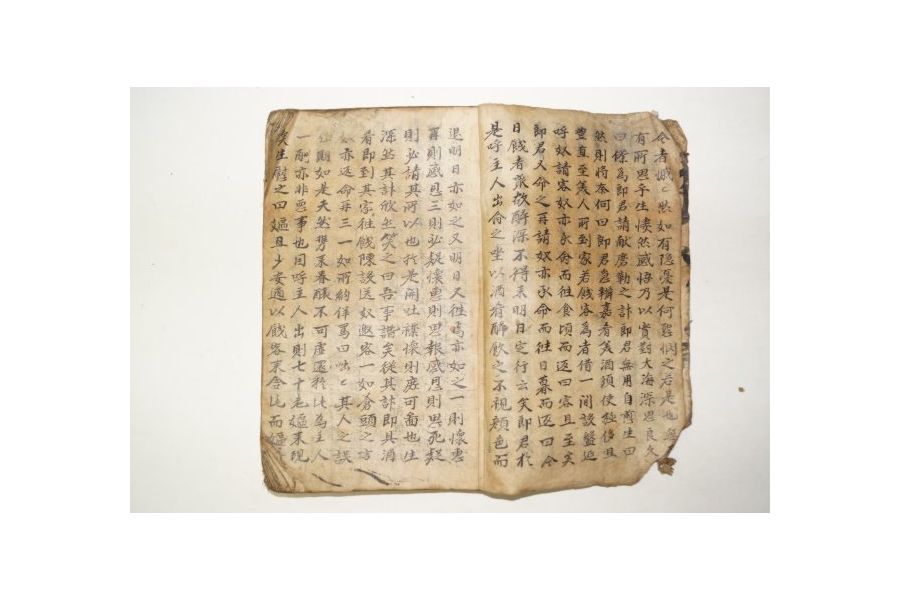 今者惙々然如有隱憂是何悶之若是也
有所思乎生悽然感悟乃以實對大海深思良久
曰僕為郎君請献磨勒之計郎君無用自煎生曰
然則將奈何曰郎君急辦嘉肴美酒須使極侈且
豊直至美人所到家若餞客為者借一間設盤延
呼奴請客奴亦承命而徃食頃而返曰客且至矣
郎君又命之再請奴亦承命而徃日暮而返曰今
日餞者衆飲醉深不得来明日定行云矣郎君於
是呼主人出命之坐以酒肴醉飲之不視顔色而
退明日亦如之又明日又徃焉亦如之一則懷惠
再則感恩三則必疑懷惠則思報感恩則思死疑
則必請其所以也於是開吐襟懷則庶可啚也生
深然其計欣然笑之曰吾事諧矣從其計即具酒
肴即到其家徃餞陳設送奴邀客一如蒼頭之言
奴亦返命再三一如所約佯罵曰咄々其人之誤
期如是夫然来春醸不可虚還於此為主人
一酌亦非惡事也因呼主人出則七十老嫗来現
矣生慰之曰嫗且少安適以餞客来舍此而嫗